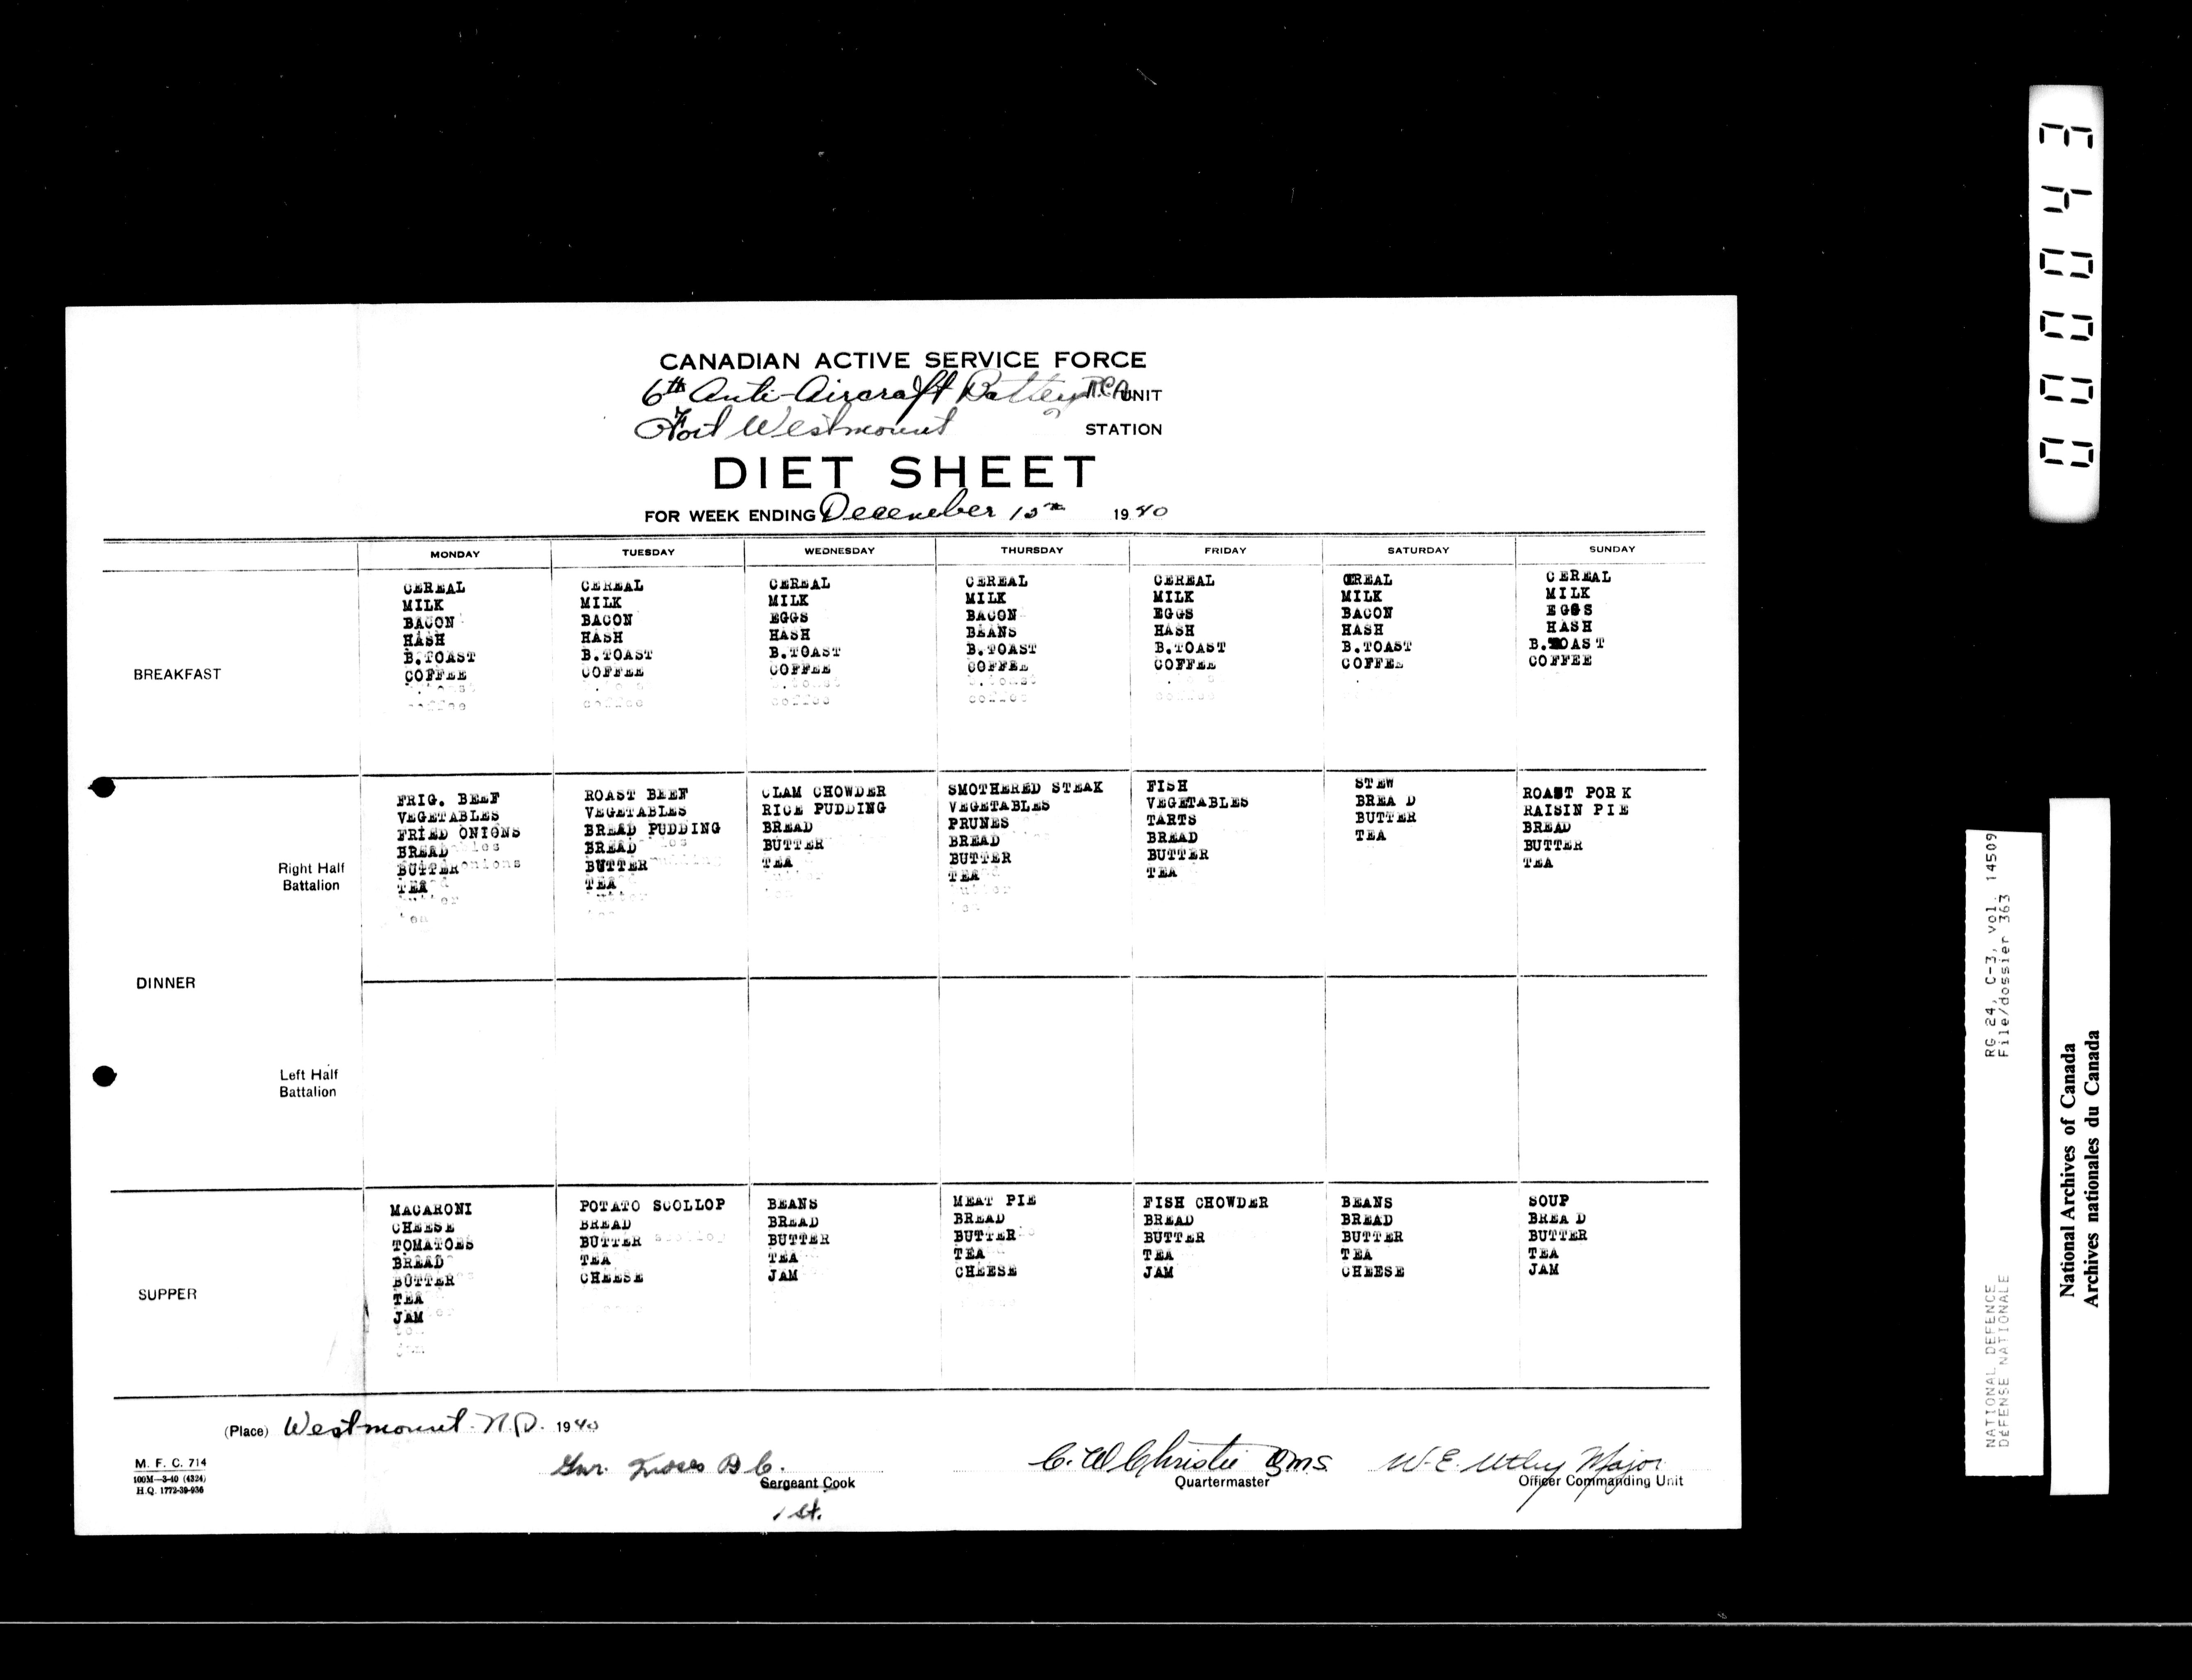 CANADIAN ACTIVE SERVICE FORCE
6th Anti-Aircraft Battery R.C.A. UNIT
Fort Westmount STATION
DIET SHEET
FOR WEEK ENDING December 15th 1940
MONDAY TUESDAY WEDNESDAY THURSDAY FRIDAY SATURDAY SUNDAY
BREAKFAST
CEREAL CEREAL CEREAL CEREAL CEREAL CREAL CEREAL
MILK MILK MILK MILK MILK MILK MILK
BACON BACON EGGS BACON EGGS BACON EGGS
HASH HASH HASH BEANS HASH HASH HASH
B.TOAST B.TOAST B.TOAST B.TOAST B.TOAST B.TOAST B.TOAST
COFFEE COFFEE COFFEE COFFEE COFFEE COFFEE COFFEE
DINNER
Right Half
Battalion
FRIG. BEEF ROAST BEEF CLAM CHOWDER SMOTHERED STEAK FISH STEW ROAST PORK
VEGETABLES VEGETABLES RICE PUDDING VEGETABLES VEGETABLES BREA D RAISIN PIE
FRIED ONIONS BREAD PUDDING BREAD PRUNES TARTS BUTTER BREAD
BREAD BREAD BUTTER BREAD BREAD TEA BUTTER
BUTTER BUTTER TEA BUTTER BUTTER TEA
TEA TEA TEA TEA
Left Half
Battalion
SUPPER
MACARONI POTATO SCOLLOP BEANS MEAT PIE FISH CHOWDER BEANS SOUP
CHEESE BREAD BREAD BREAD BREAD BREAD BREA D
TOMATOES BUTTER BUTTER BUTTER BUTTER BUTTER BUTTER
BREAD TEA TEA TEA TEA TEA TEA
BUTTER CHEESE JAM CHEESE JAM CHEESE JAM
TEA
JAM
(Place) Westmount. N.S. 1940
M. F. C. 714
100M—3-40 (4324)
H.Q. 1772-39-936
Gnr.
Sergeant Cook
C. W Christie QMS.
Quartermaster
W. E. Utley Major
Officer Commanding Unit
RG 24, C-3, vol. 14509
File/dossier 363
NATIONAL DEFENCE
DÉFENSE NATIONALE
National Archives of Canada
Archives nationales du Canada